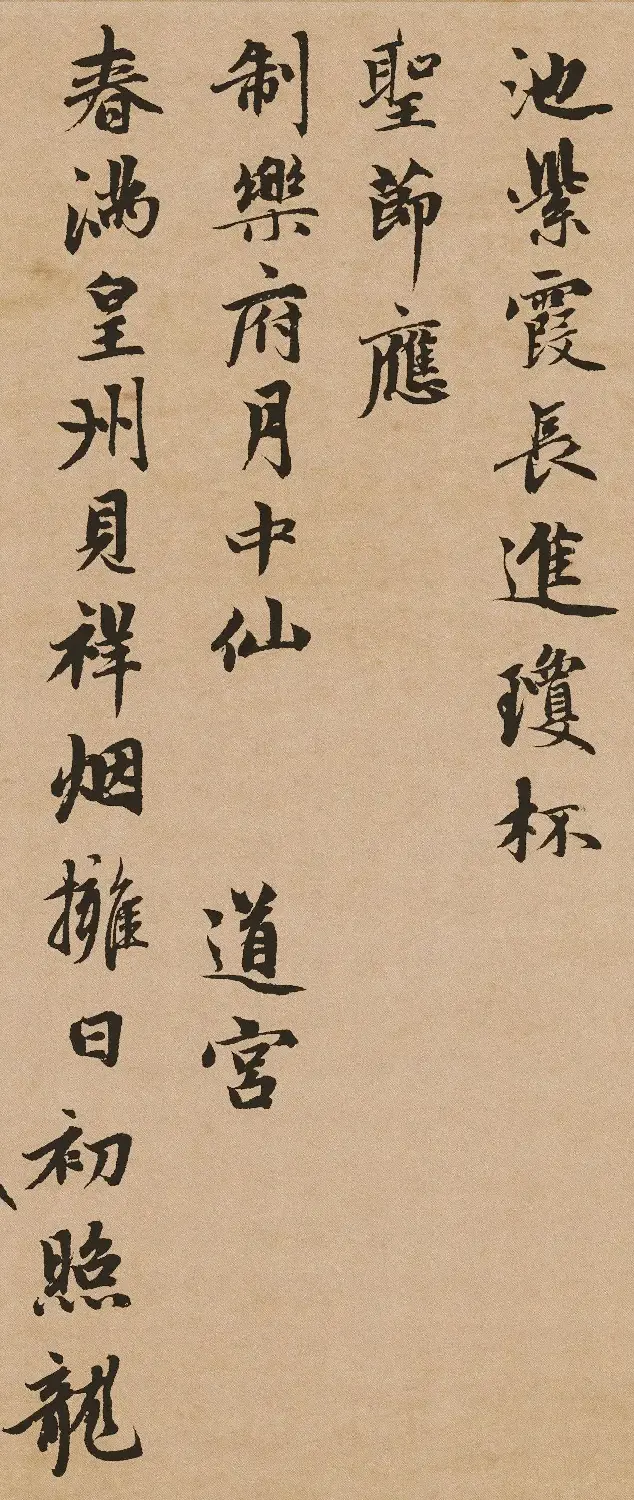 池紫霞長進瓊杯
聖節應
制樂府月中仙 道宮
春滿皇州見祥烟擁日初照龍